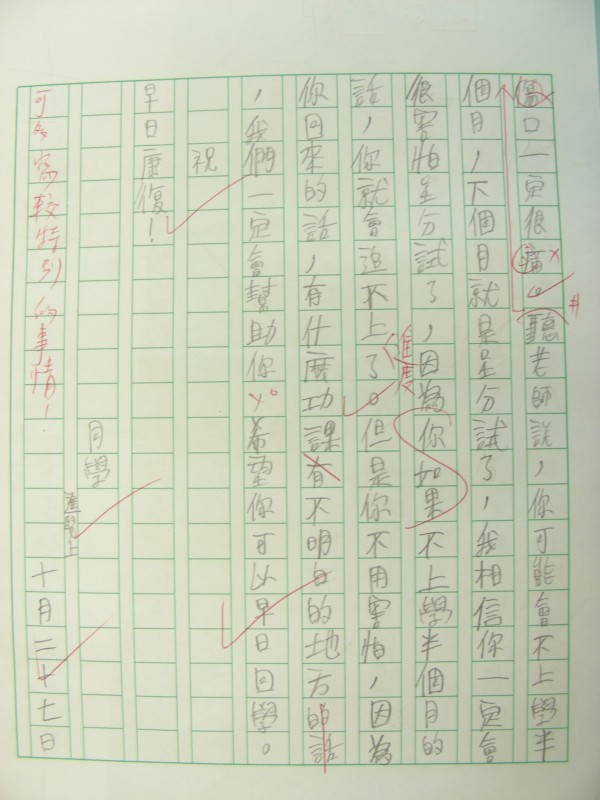 傷口一定很痛。聽老師說，你可能會不上學半
個月，下個月就是呈分試了，我相信你一定會
很害怕呈分試了，因為你如果不上學半個月的
進度
話，你就會追不上了。但是你不用害怕，因為
你回來的話，有什麼功課有不明白的地方的話
，我們一定會幫助你。希望你可以早日回學。
祝
早日康復！
月學
上
十月二十七日
可多寫較特別的事情！